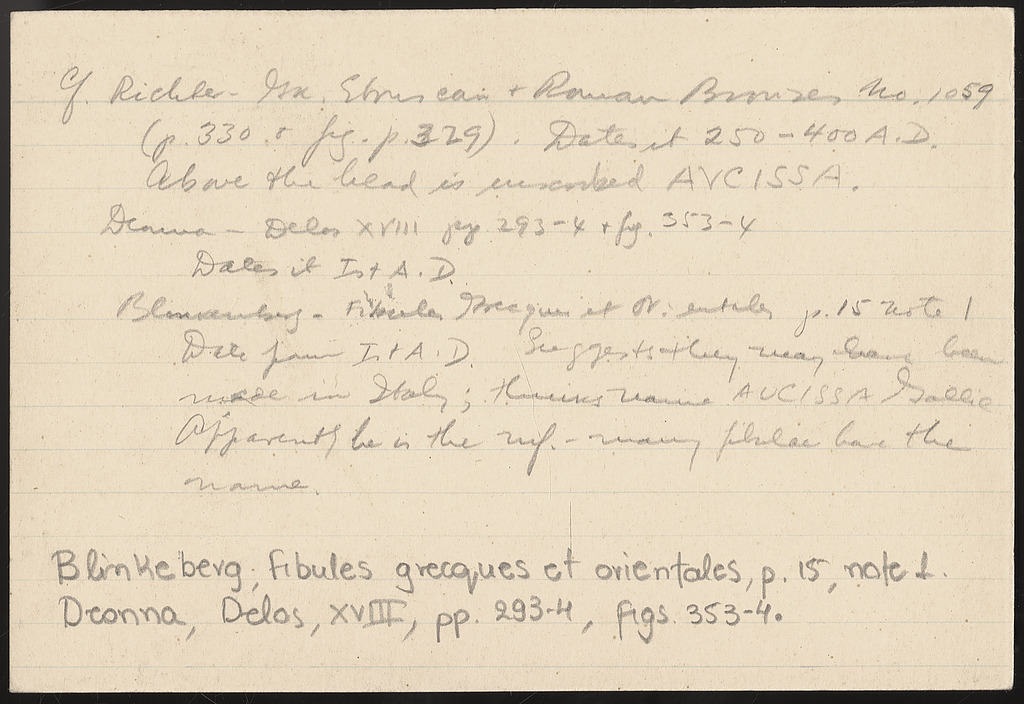 Cf. Richter - Gk. Etruscan + Roman Bronzes No. 1059
(p. 330. & fig. p. 329). Dates it 250-400 A.D.
Above the head is inscribed AVCISSA.
Deonna - Delos XVIII pp. 293-4 + fig. 353-4
Dates it Ist A.D.
Blinkenberg - Fibules Grecques et Orientales p. 15 note 1
Date from Ist A.D. Suggests they may have been
made in Italy; thinks name AUCISSA Gallic
Apparently he is the mf. - many fibulae have the
name.
Blinkeberg, Fibules grecques et orientales, p. 15, note 1.
Deonna, Délos, XVIII, pp. 293-4, figs. 353-4.